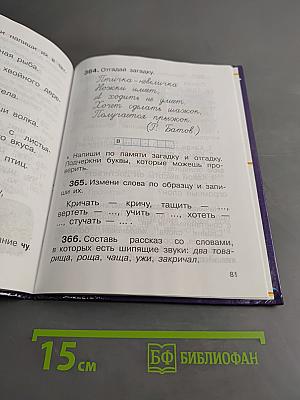 и напиши их в
ная рыба.
хвойного дере-
тела.
ши волка.
с листья-
о вкуса.
птиц.
ание чу.
364. Отгадай загадку.
Птичка-невеличка
Ножки имеет,
А ходить не умеет.
Хочет сделать шажок,
Получается прыжок.
(Г. Батов)
в
• Напиши по памяти загадку и отгадку.
Подчеркни буквы, которые можешь про-
верить.
365. Измени слова по образцу и запи-
ши их.
Кричать — кричу, тащить — ...,
вертеть — ..., учить — ..., хотеть —
..., стучать — ... .
366. Составь рассказ со словами,
в которых есть шипящие звуки: два то-
варища, роща, чаща, ужи, закричал.
81
15 см
БФ БИБЛИОФАН